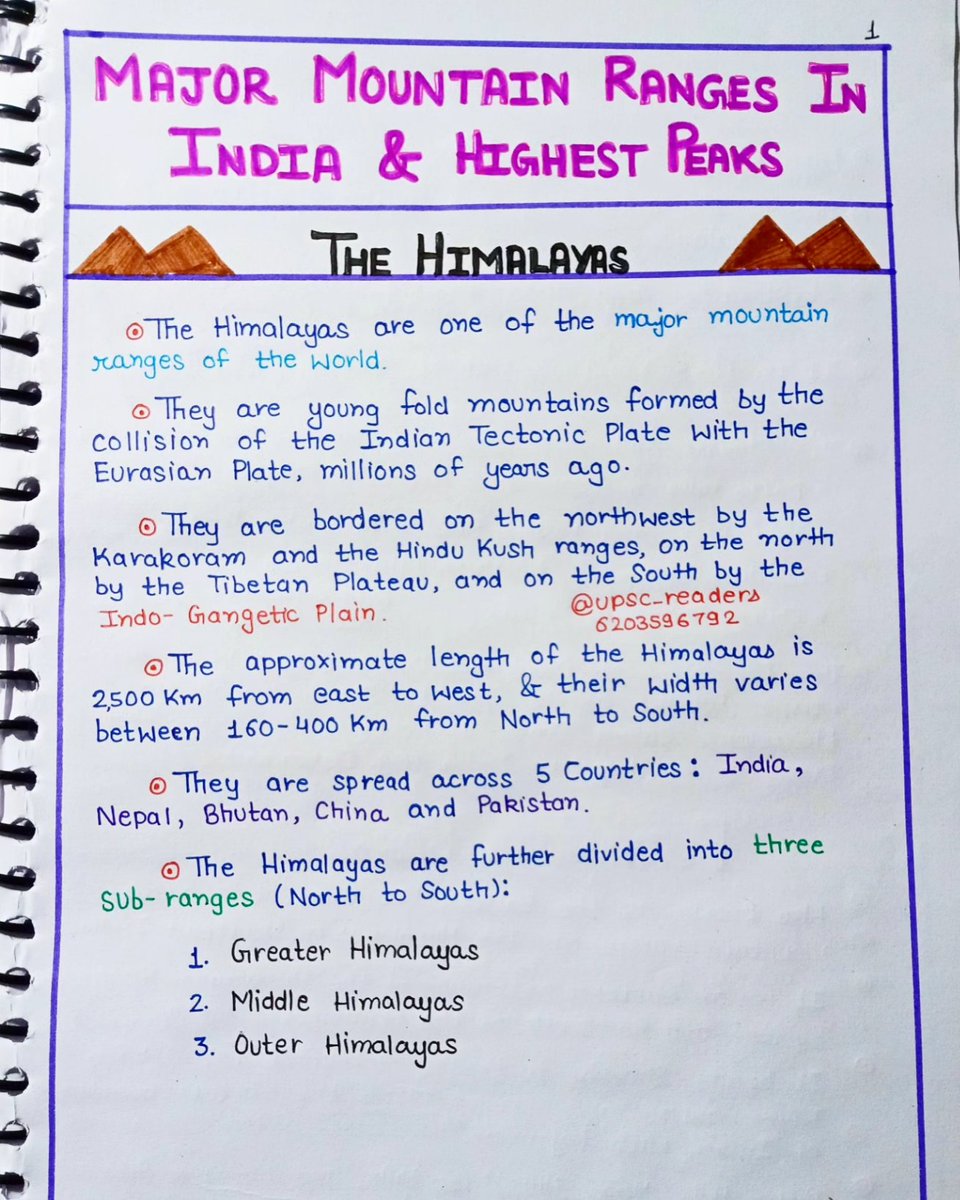 1
MAJOR MOUNTAIN RANGES IN
INDIA & HIGHEST PEAKS
THE HIMALAYAS
The Himalayas are one of the major mountain
ranges of the world.
They are young fold mountains formed by the
collision of the Indian Tectonic Plate with the
Eurasian Plate, millions of years ago.
They are bordered on the northwest by the
Karakoram and the Hindu Kush ranges, on the north
by the Tibetan Plateau, and on the South by the
Indo-Gangetic Plain.
@upsc_readers
6203596792
The approximate length of the Himalayas is
2,500 Km from east to west, & their width varies
between 160-400 Km from North to South.
They are spread across 5 Countries: India,
Nepal, Bhutan, China and Pakistan.
The Himalayas are further divided into three
sub-ranges (North to South):
1. Greater Himalayas
2. Middle Himalayas
3. Outer Himalayas